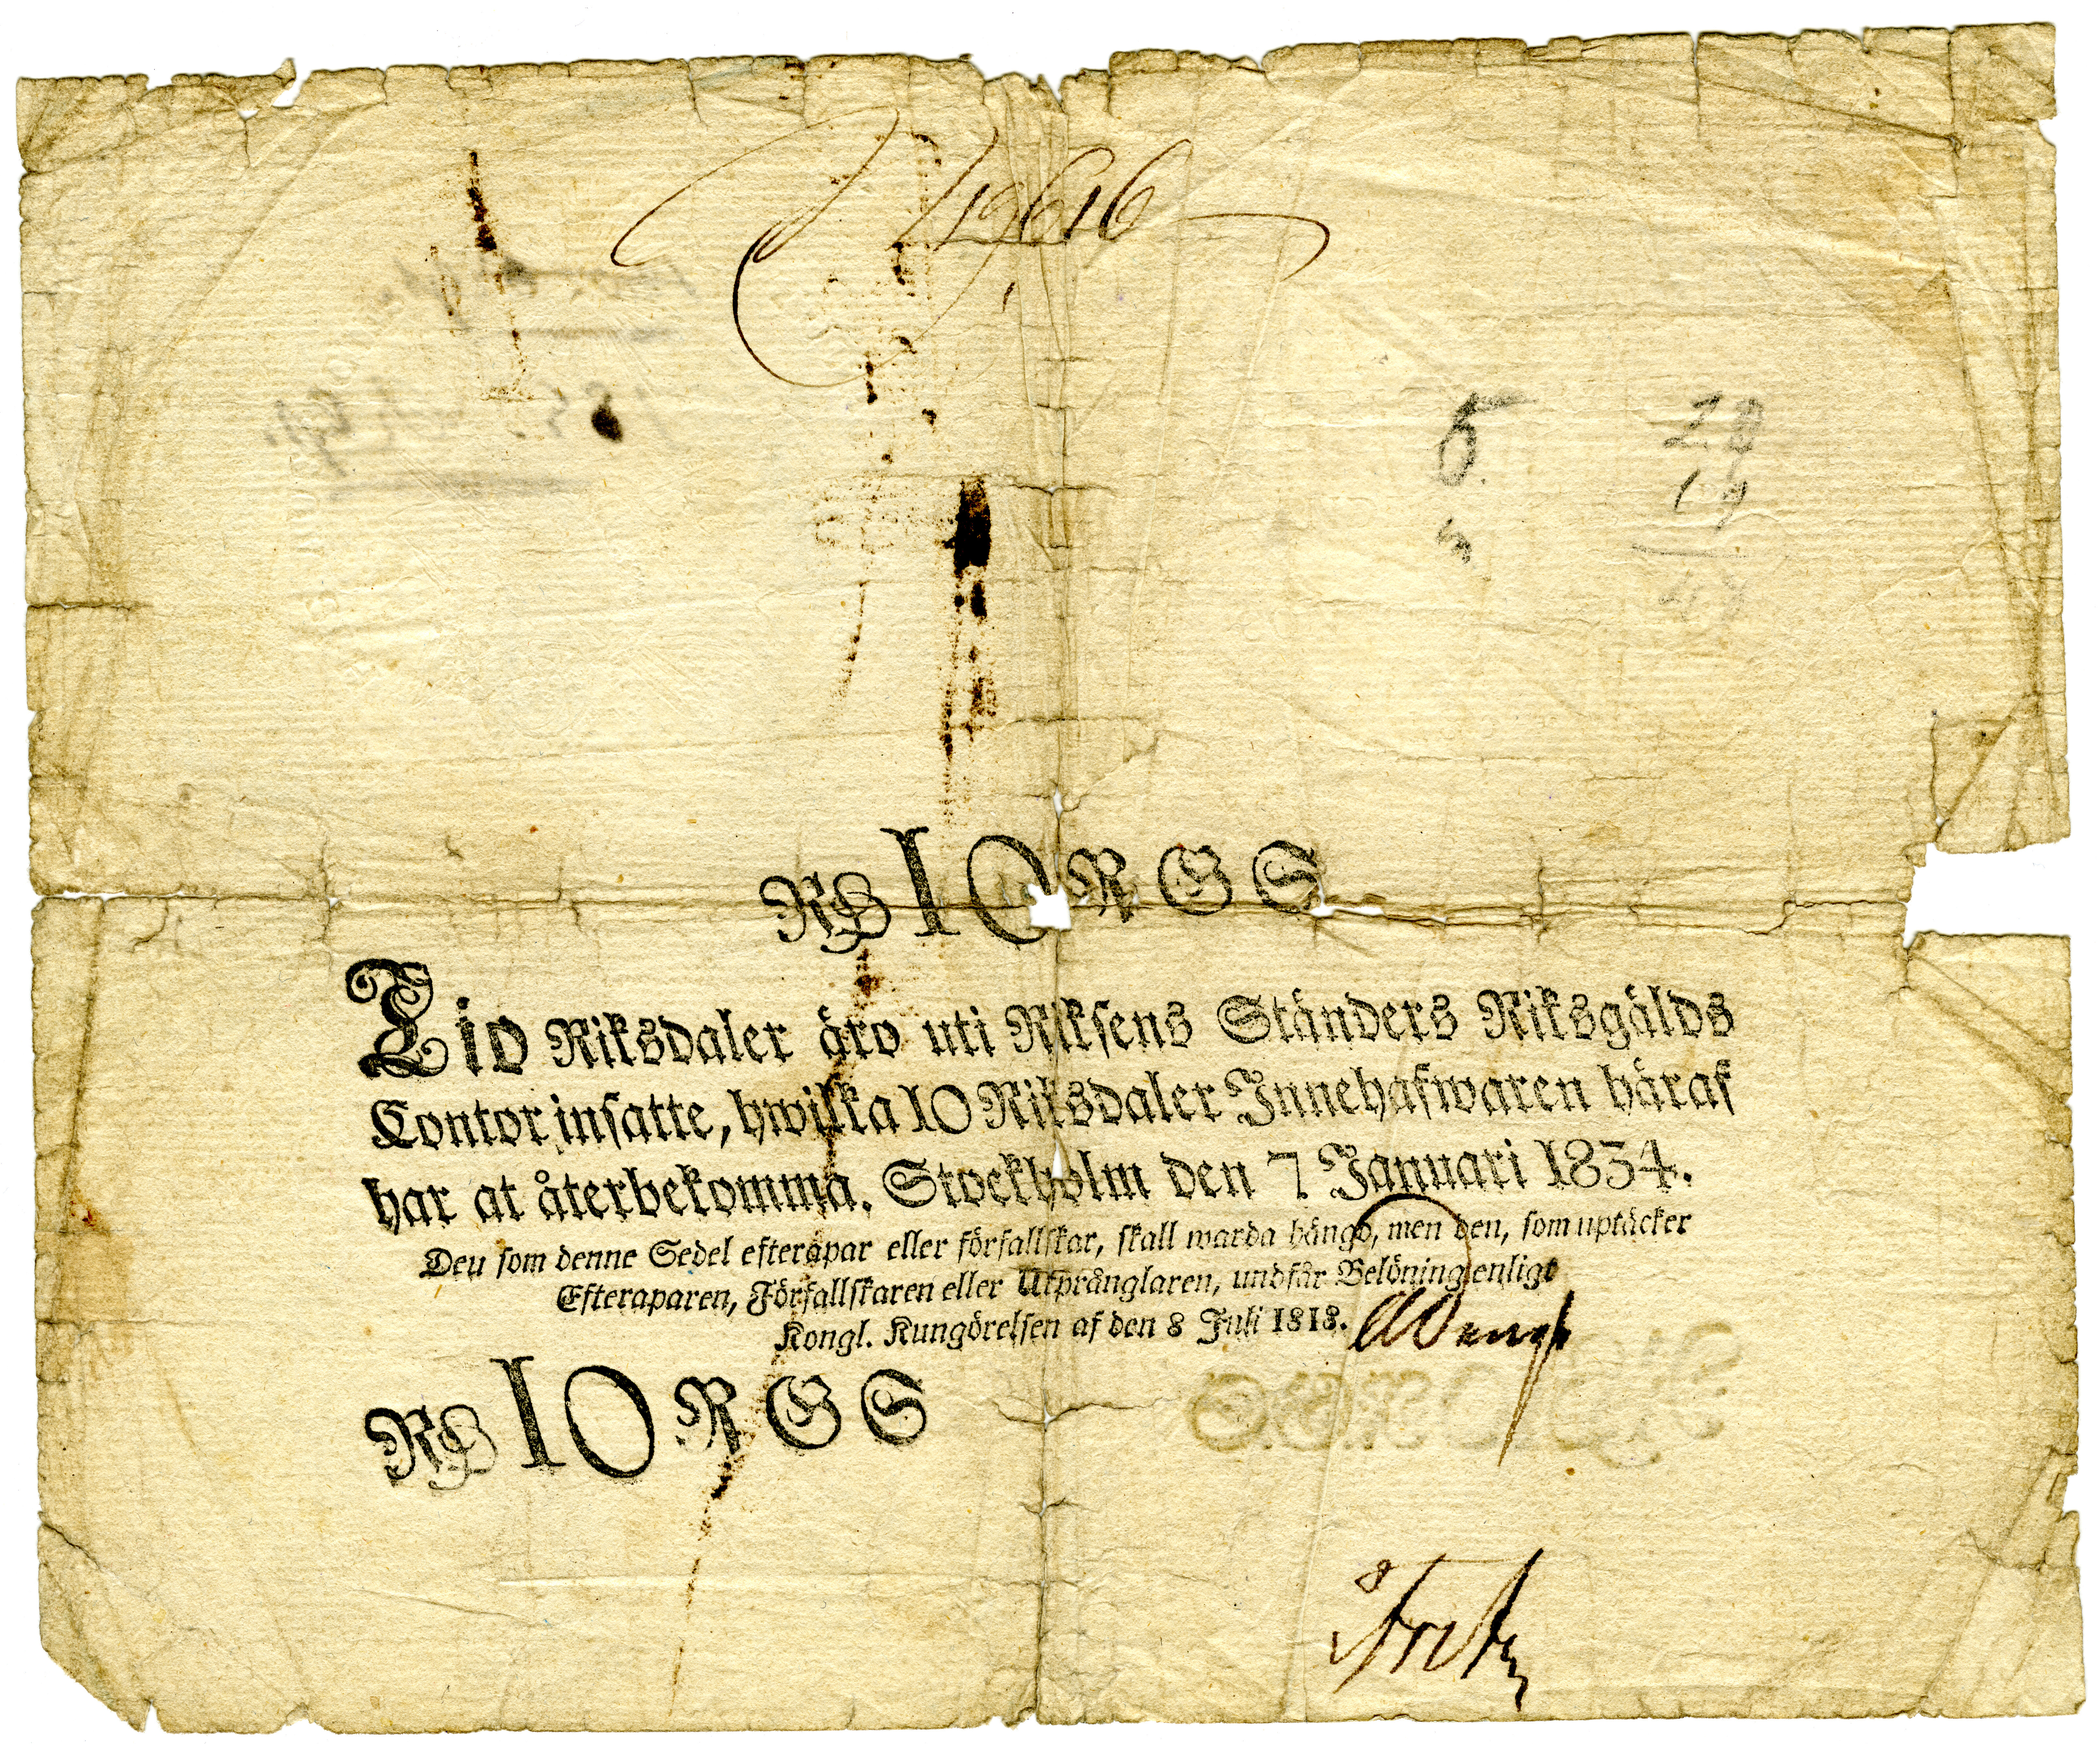 19616
5
28
19
RS 10 RGS
Tio Riksdaler äro uti Riksens Ständers Riksgälds
Contor insatte, hwilka 10 Riksdaler Innehafwaren häraf
har at återbekomma. Stockholm den 7 Januari 1834.
Den som denne Sedel efterapar eller förfallskar, skall warda hängd, men den, som uptäcker
Efteraparen, Förfallskaren eller Utprånglaren, undfår Belöning enligt
Kongl. Kungörelsen af den 8 Juli 1818.
RS 10 RGS